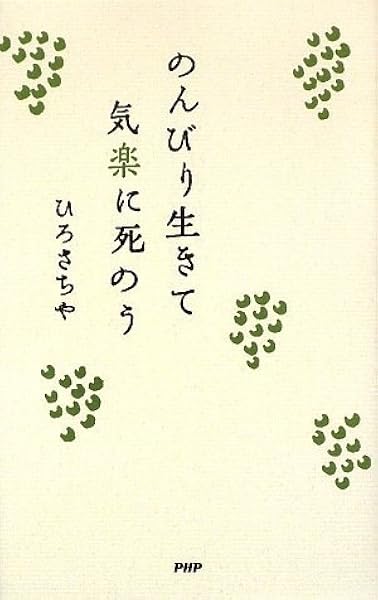 のんびり生きて
気楽に死のう
ひろさちや
PHP